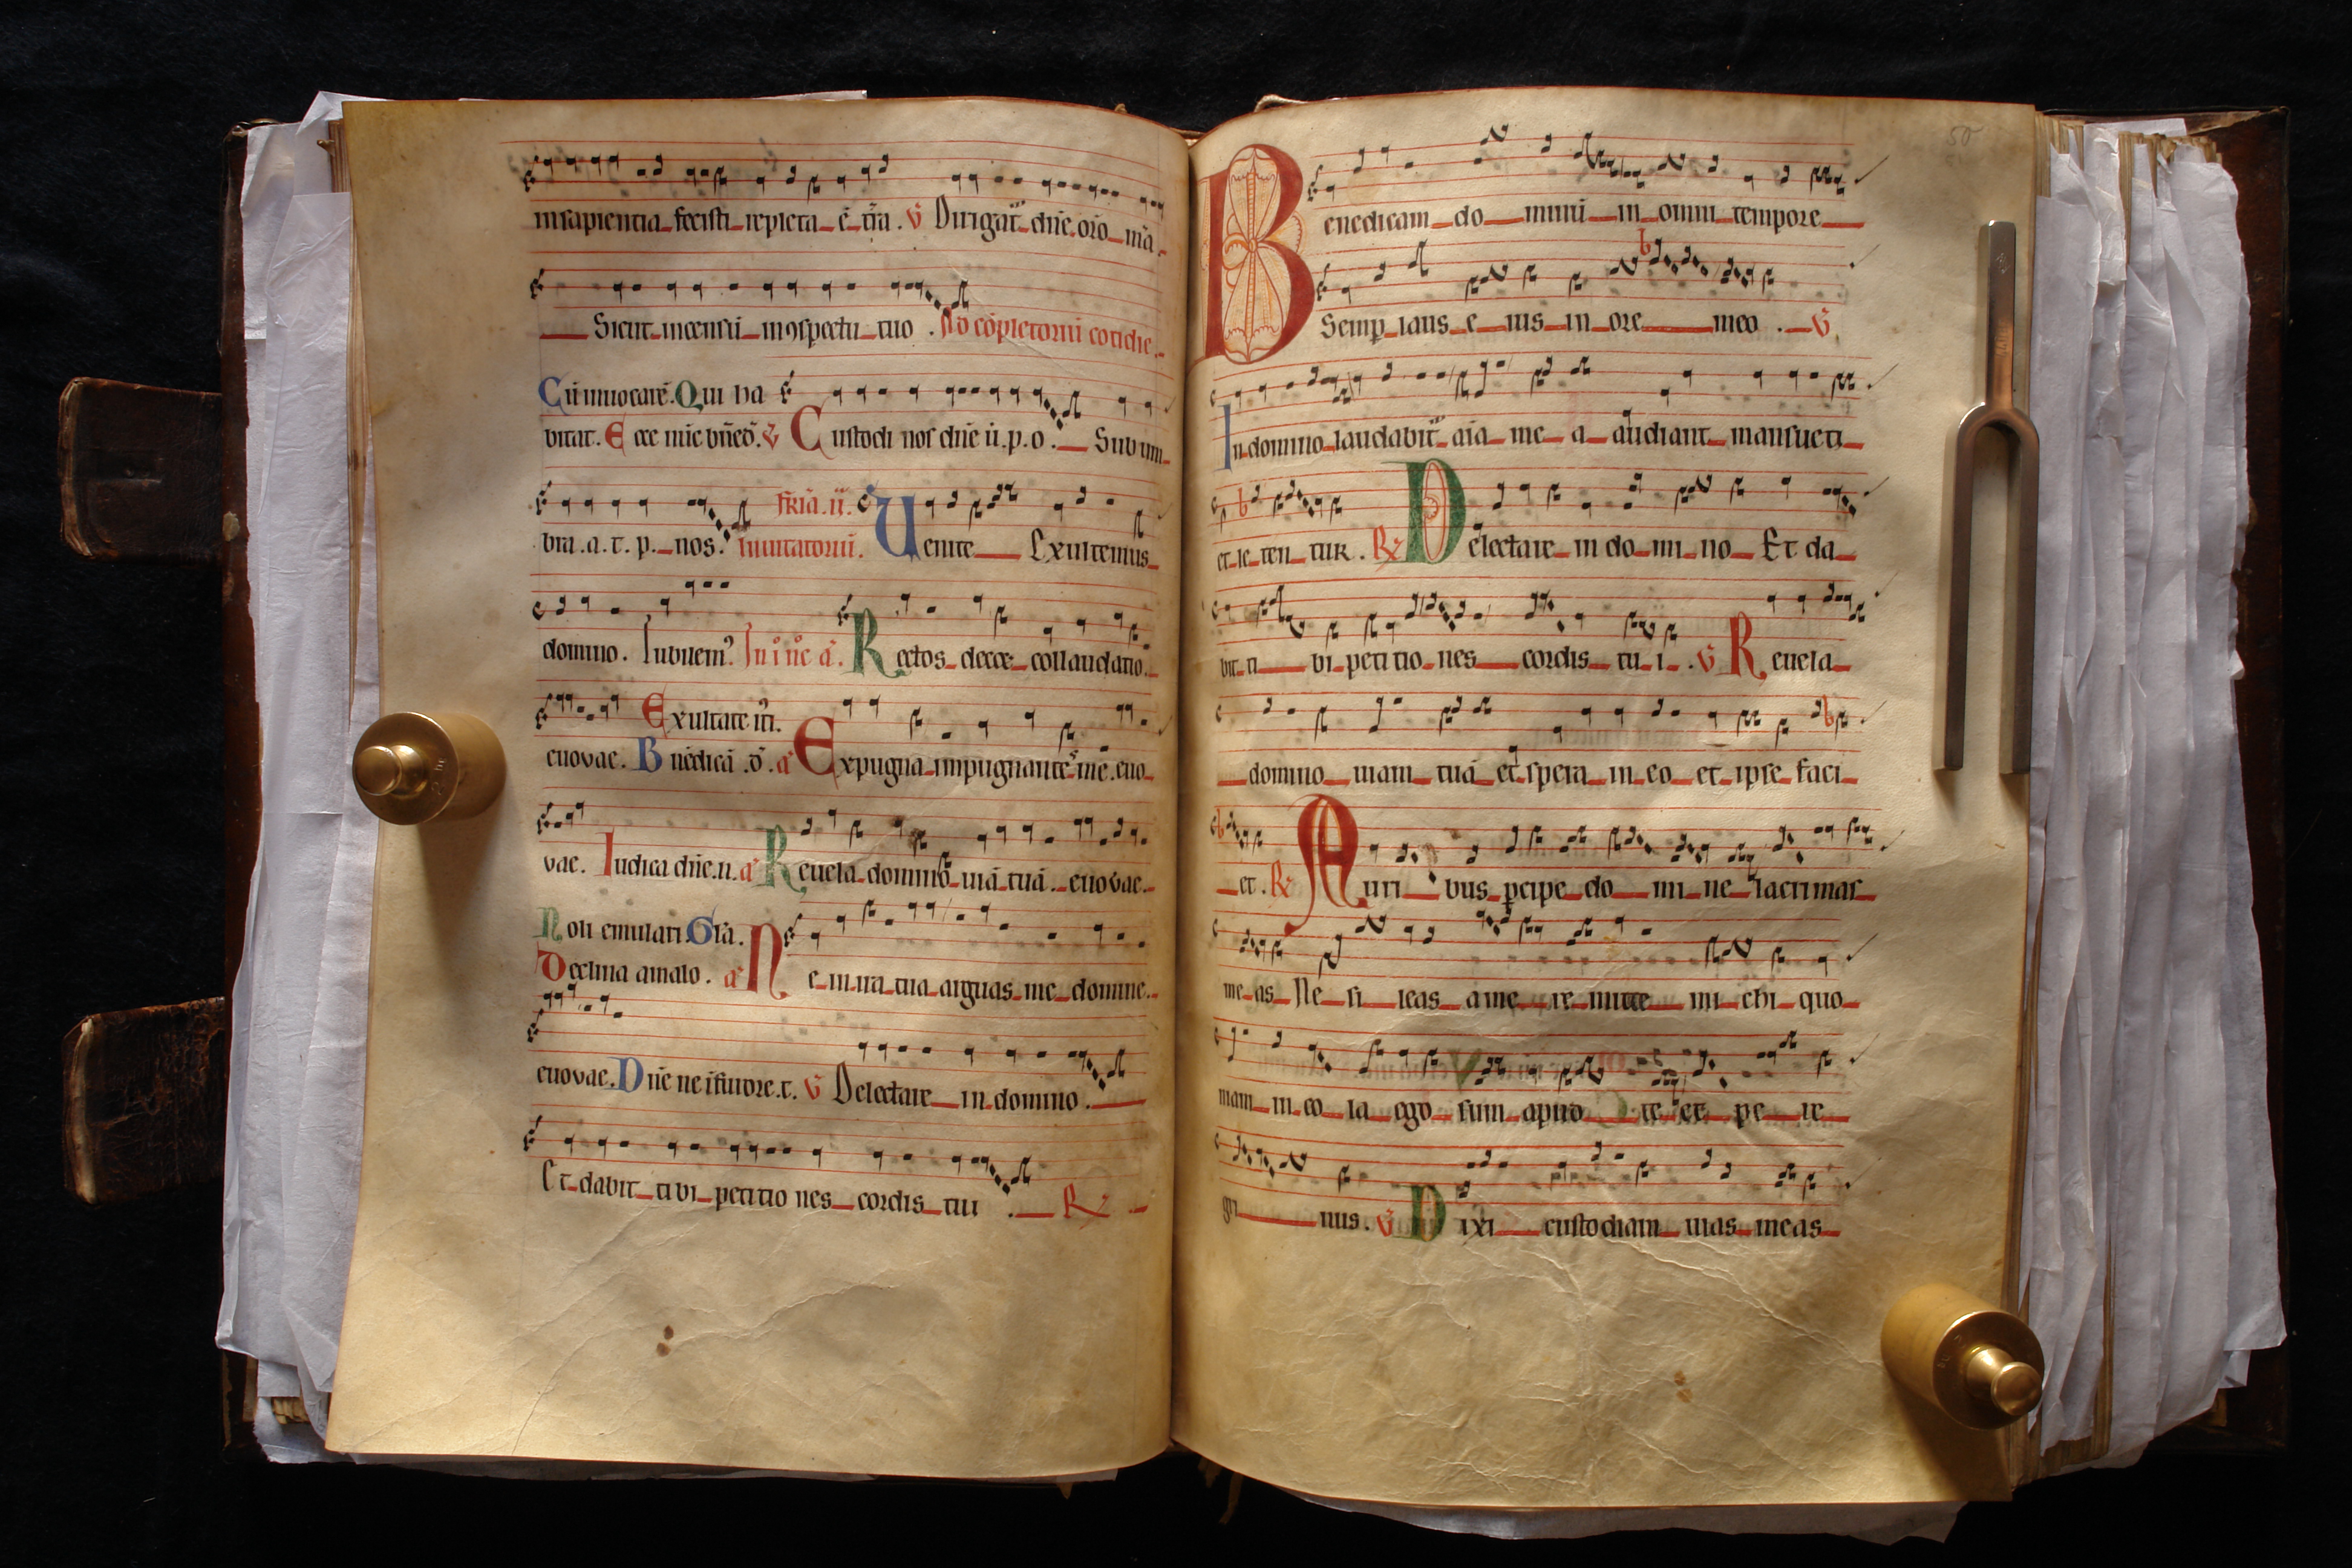 insapientia fecisti repleta ē t̄ra . V̄ Dirigat᷑ dn̄e orō m̄a
Sicut incensū inꝯspectu tuo . Ad cōpletoriū cotidie .
Cū invocarē. Qui ha
bitat. Ecce nūc bn̄ed̄. V̄ Custodi nos dn̄e ū . p . o . Sub um
bra . a . t . p . nos . fr̄ia . ii . Invitatoriū . Uenite Exultemus
domino . Iubilem᷒ . In i nōc ā . Rectos decet collaudatio .
euovae . Exultate iti .
Bn̄edicā . d̄ . a Expugna impugnantes me . euo
vae . Iudica dn̄e . n . a Reuela domino uiā tuā . euovae .
Noli emulari . Gl̄a .
Declina amalo . a Ne in ira tua arguas me domine .
euovae . Dn̄e ne ī furore . t . V̄ Delectare in domino .
Et dabit tibi petitio nes cordis tui . R̷
50
Benedicam do mini in omni tempore
Semp̱ laus e ius in ore meo . V̄
In domino laudabit᷑ aīa me a audiant mansueti
et le ten tur . R̷ Delectare in do mi no Et da
bit ti bi peti tio nes cordis tu i . V̄ Reuela
domino uiam tuā et spera in eo et ipse faci
et . R̷ Auri bus p̱cipe do mi ne lacrimas
me as Ne si leas ame re mitte mi chi quo
niam in co la ego sum apud te et pe re
gri nus . V̄ Dixi custodiam uias meas